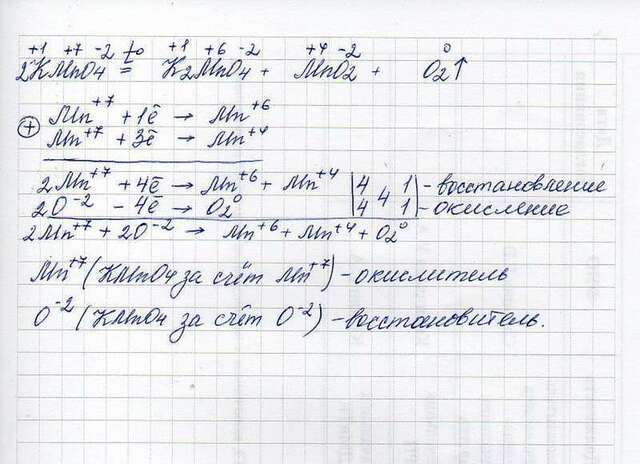 +1 +7 -2 to +1 +6 -2 +4 -2 0
2KMnO4 = K2MnO4 + MnO2 + O2↑
Mn+7 + 1ē → Mn+6
⊕
Mn+7 + 3ē → Mn+4
2Mn+7 + 4ē → Mn+6 + Mn+4 | 4 | 1 | - восстановление
4
2O-2 - 4ē → O2 0 | 4 | 1 | - окисление
2Mn+7 + 2O-2 → Mn+6 + Mn+4 + O2 0
Mn+7 (KMnO4 за счёт Mn+7) - окислитель
O-2 (KMnO4 за счёт O-2) - восстановитель.